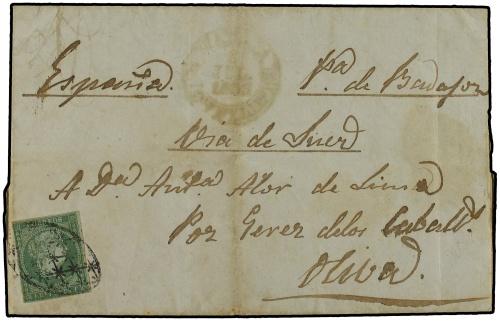 España. Pª de Badajoz
Via de Suez
A Dª Antª Alor de Lima
Por Gerez delos Caballs.
Oliva.